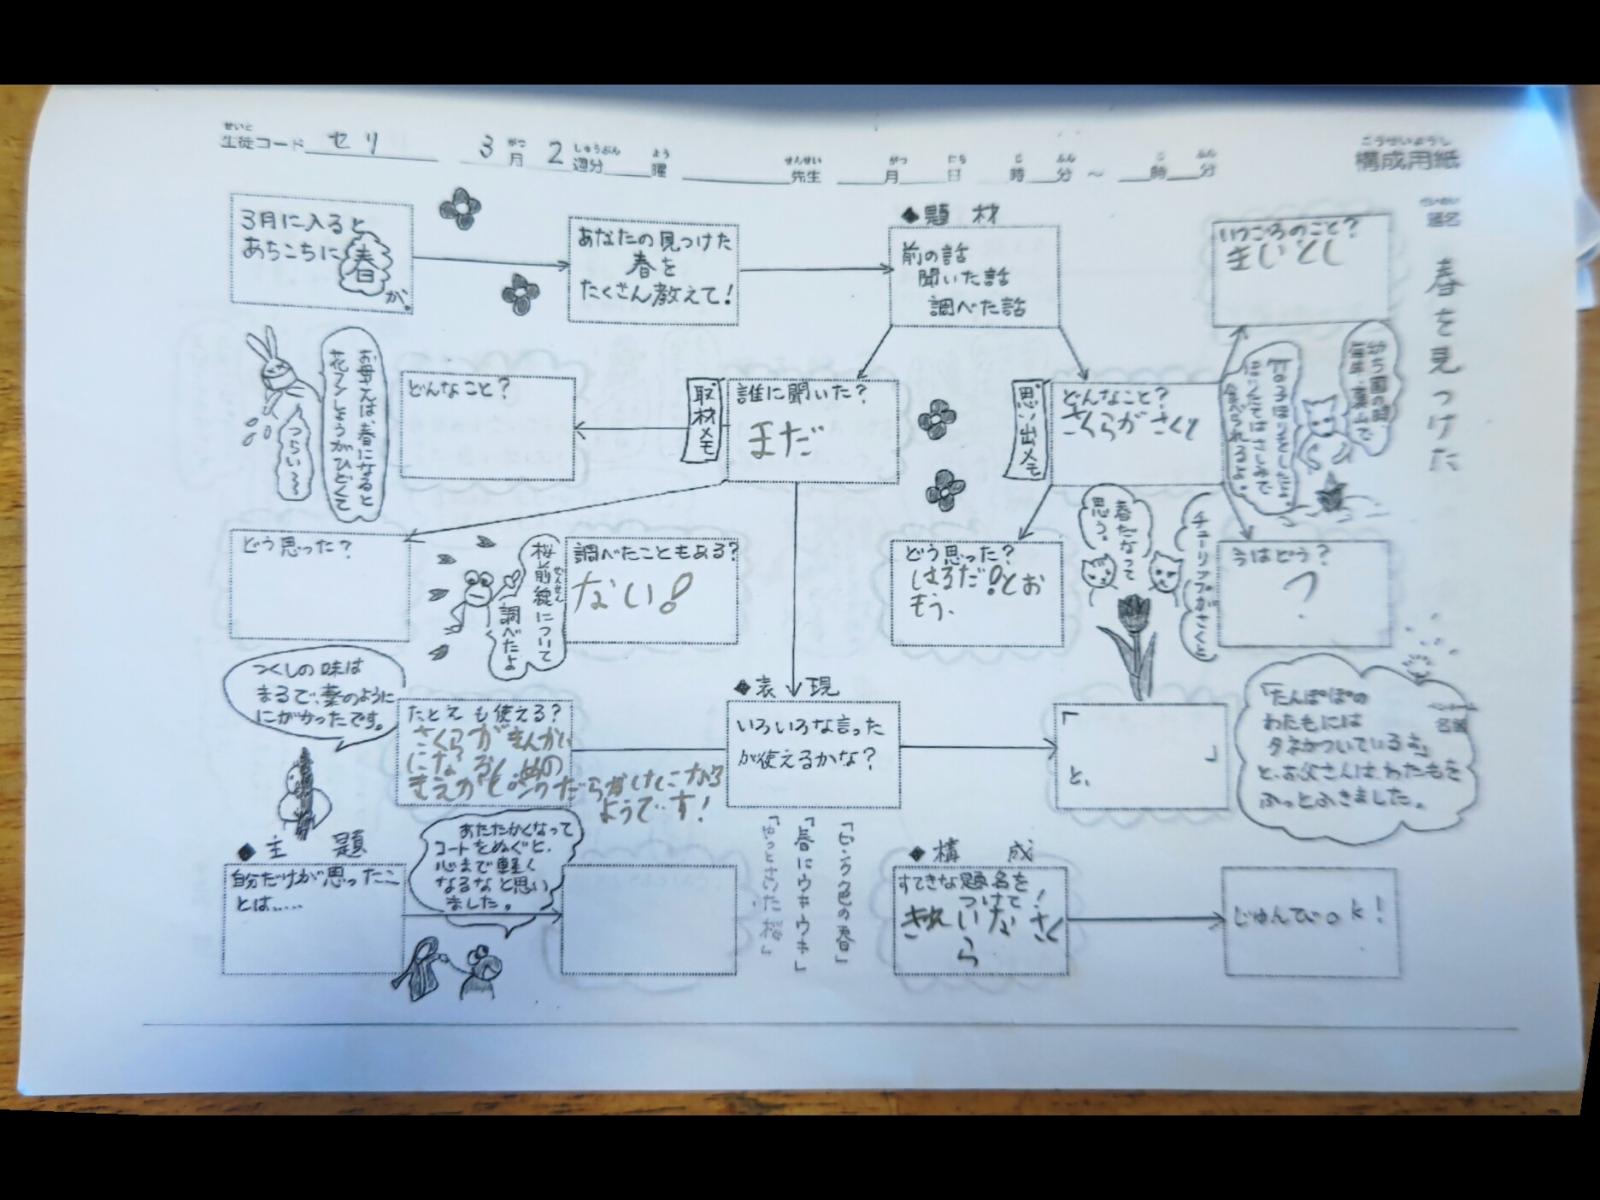 せいと
生徒コード セリ 3月 2週分 曜 先生 月 日 時 分 ～ 時 分
がつ しゅうぶん よう せんせい がつ にち じ ふん じ ふん
こうせいようし
構成用紙
だいめい
題名
春を見つけた
3月に入ると
あちこちに春
が。
あなたの見つけた
春を
たくさん教えて!
◆題 材
前の話
聞いた話
調べた話
いつごろのこと?
まいとし
お母さんは、春になると
花フンしょうがひどくて
つらい〜
どんなこと?
取材メモ
誰に聞いた?
まだ
思い出メモ
どんなこと?
さくらがさくく
幼ち園の時
毎年、葉山で
竹の子ほりをしたよ
ほりたてはさしみで
食べられるよ。
どう思った?
桜前線について
ぜんせん
調べたよ
調べたこともある?
ない!
どう思った?
はるだ!とお
もう、
チューリップがさくと
春だなって
思う。
今はどう?
?
つくしの味は
まるで、薬のように
にがかったです。
たとえも使える?
さくらがまんかい
になる
ようです!
◆表 現
いろいろな言った
が使えるかな?
「
」
と、
ペンネーム
「たんぽぽの
わたもには
タネがついているよ」
と、お父さんは、わたもを
ふっとふきました。
◆主 題
自分だけが思ったこ
とは.....
あたたかくなって
コートをぬぐと、
心まで軽く
なるなと思い
ました。
「ピンク色の春」
「春にウキウキ」
「やっとさいた桜」
◆構 成
すてきな題名を
つけて!
きれいなさく
ら
じゅんびok!